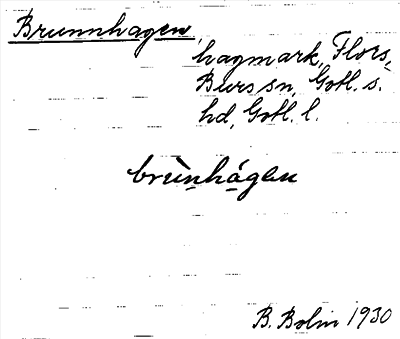 Brunnhagen,
hagmark, Flors,
Burs sn, Gotl. s.
hd, Gotl. l.
brùn̲há̲gen
B. Bolin 1930